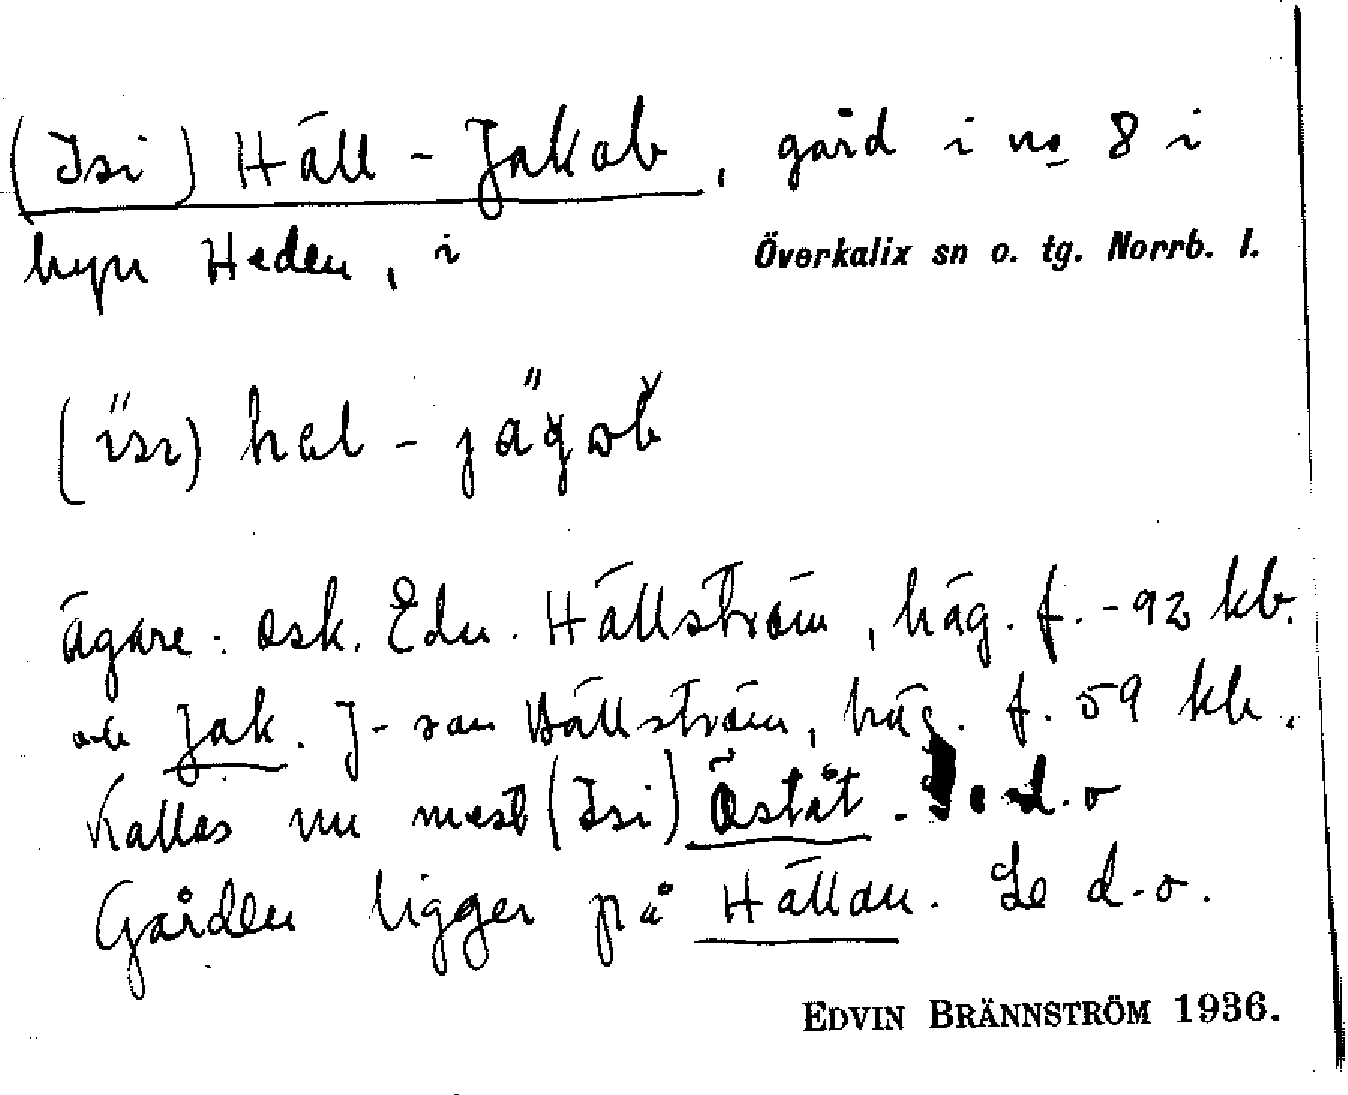 (Isi) Häll-Jakob, gård i no 8 i
byn Heden, i Överkalix sn o. tg. Norrb. l.
(ïsı) hal-jägob
ägare: Osk. Edv. Hällström, häg. f. -92 kb.
och Jak. J-son Hällström, häg. f. 59 kb.
Kallas nu mest (Isi) Öståt. Se d.o
Gården ligger på Hällan. Se d.o.
EDVIN BRÄNNSTRÖM 1936.